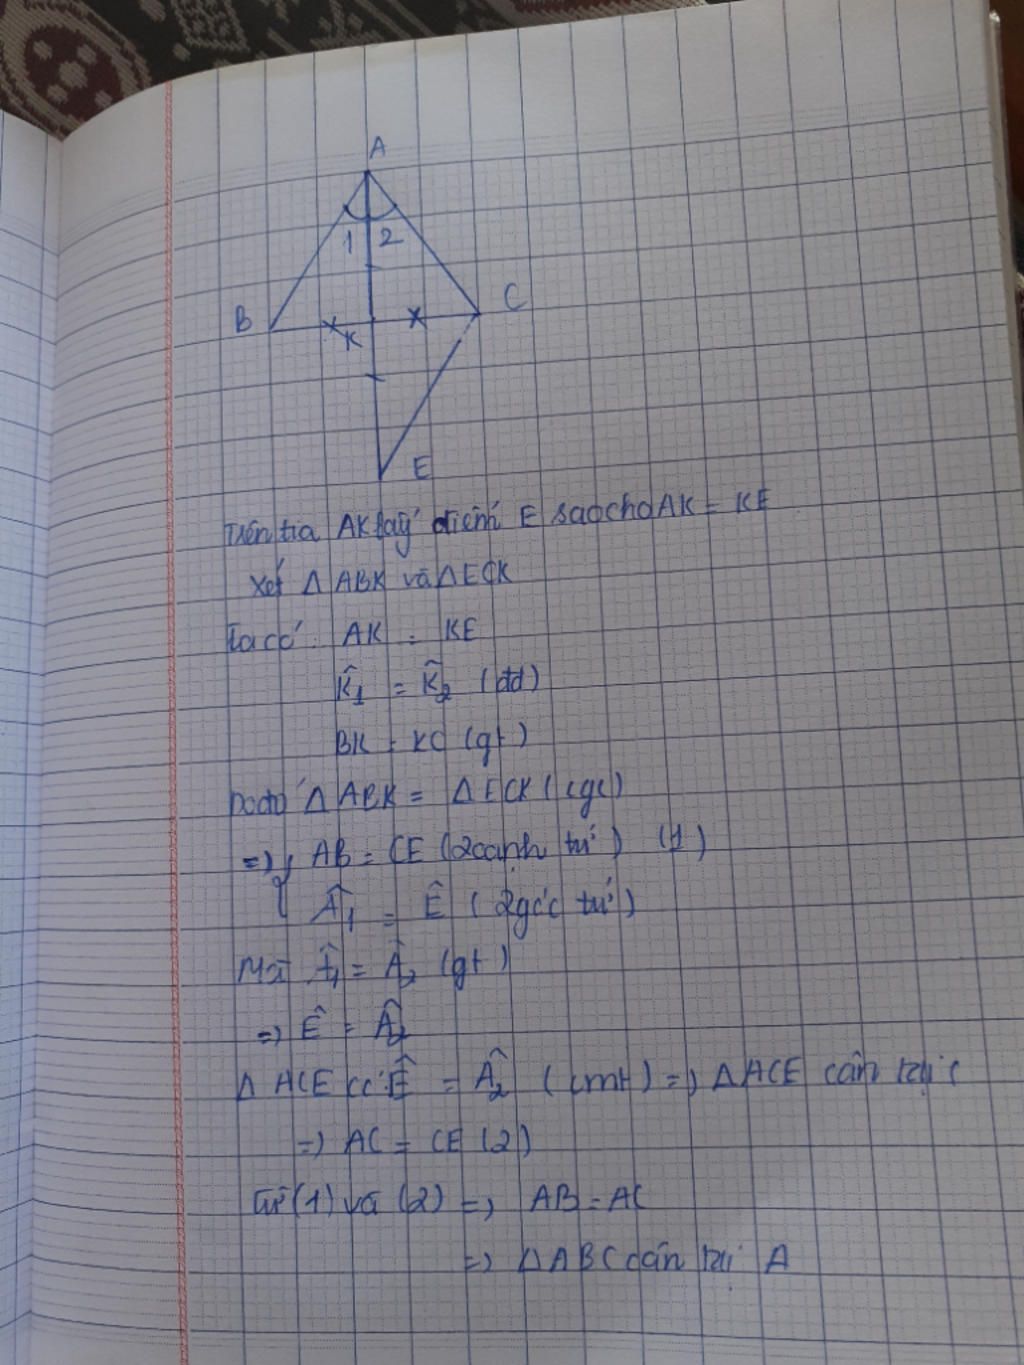 A
1 2
B
C
K
E
Trên tia AK lấy điểm E sao cho AK = KE
Xét Δ ABK và Δ ECK
Ta có: AK = KE
K̂₁ = K̂₂ (đđ)
BK = KC (gt)
Do đó Δ ABK = Δ ECK (cgc)
=> { AB = CE (2 cạnh tứ) (1)
Â₁ = Ê (2 góc tứ)
Mà Â₁ = Â₂ (gt)
=> Ê = Â₂
Δ ACE có Ê = Â₂ (cmt) => Δ ACE cân tại C
=> AC = CE (2)
Từ (1) và (2) => AB = AC
=> Δ ABC cân tại A